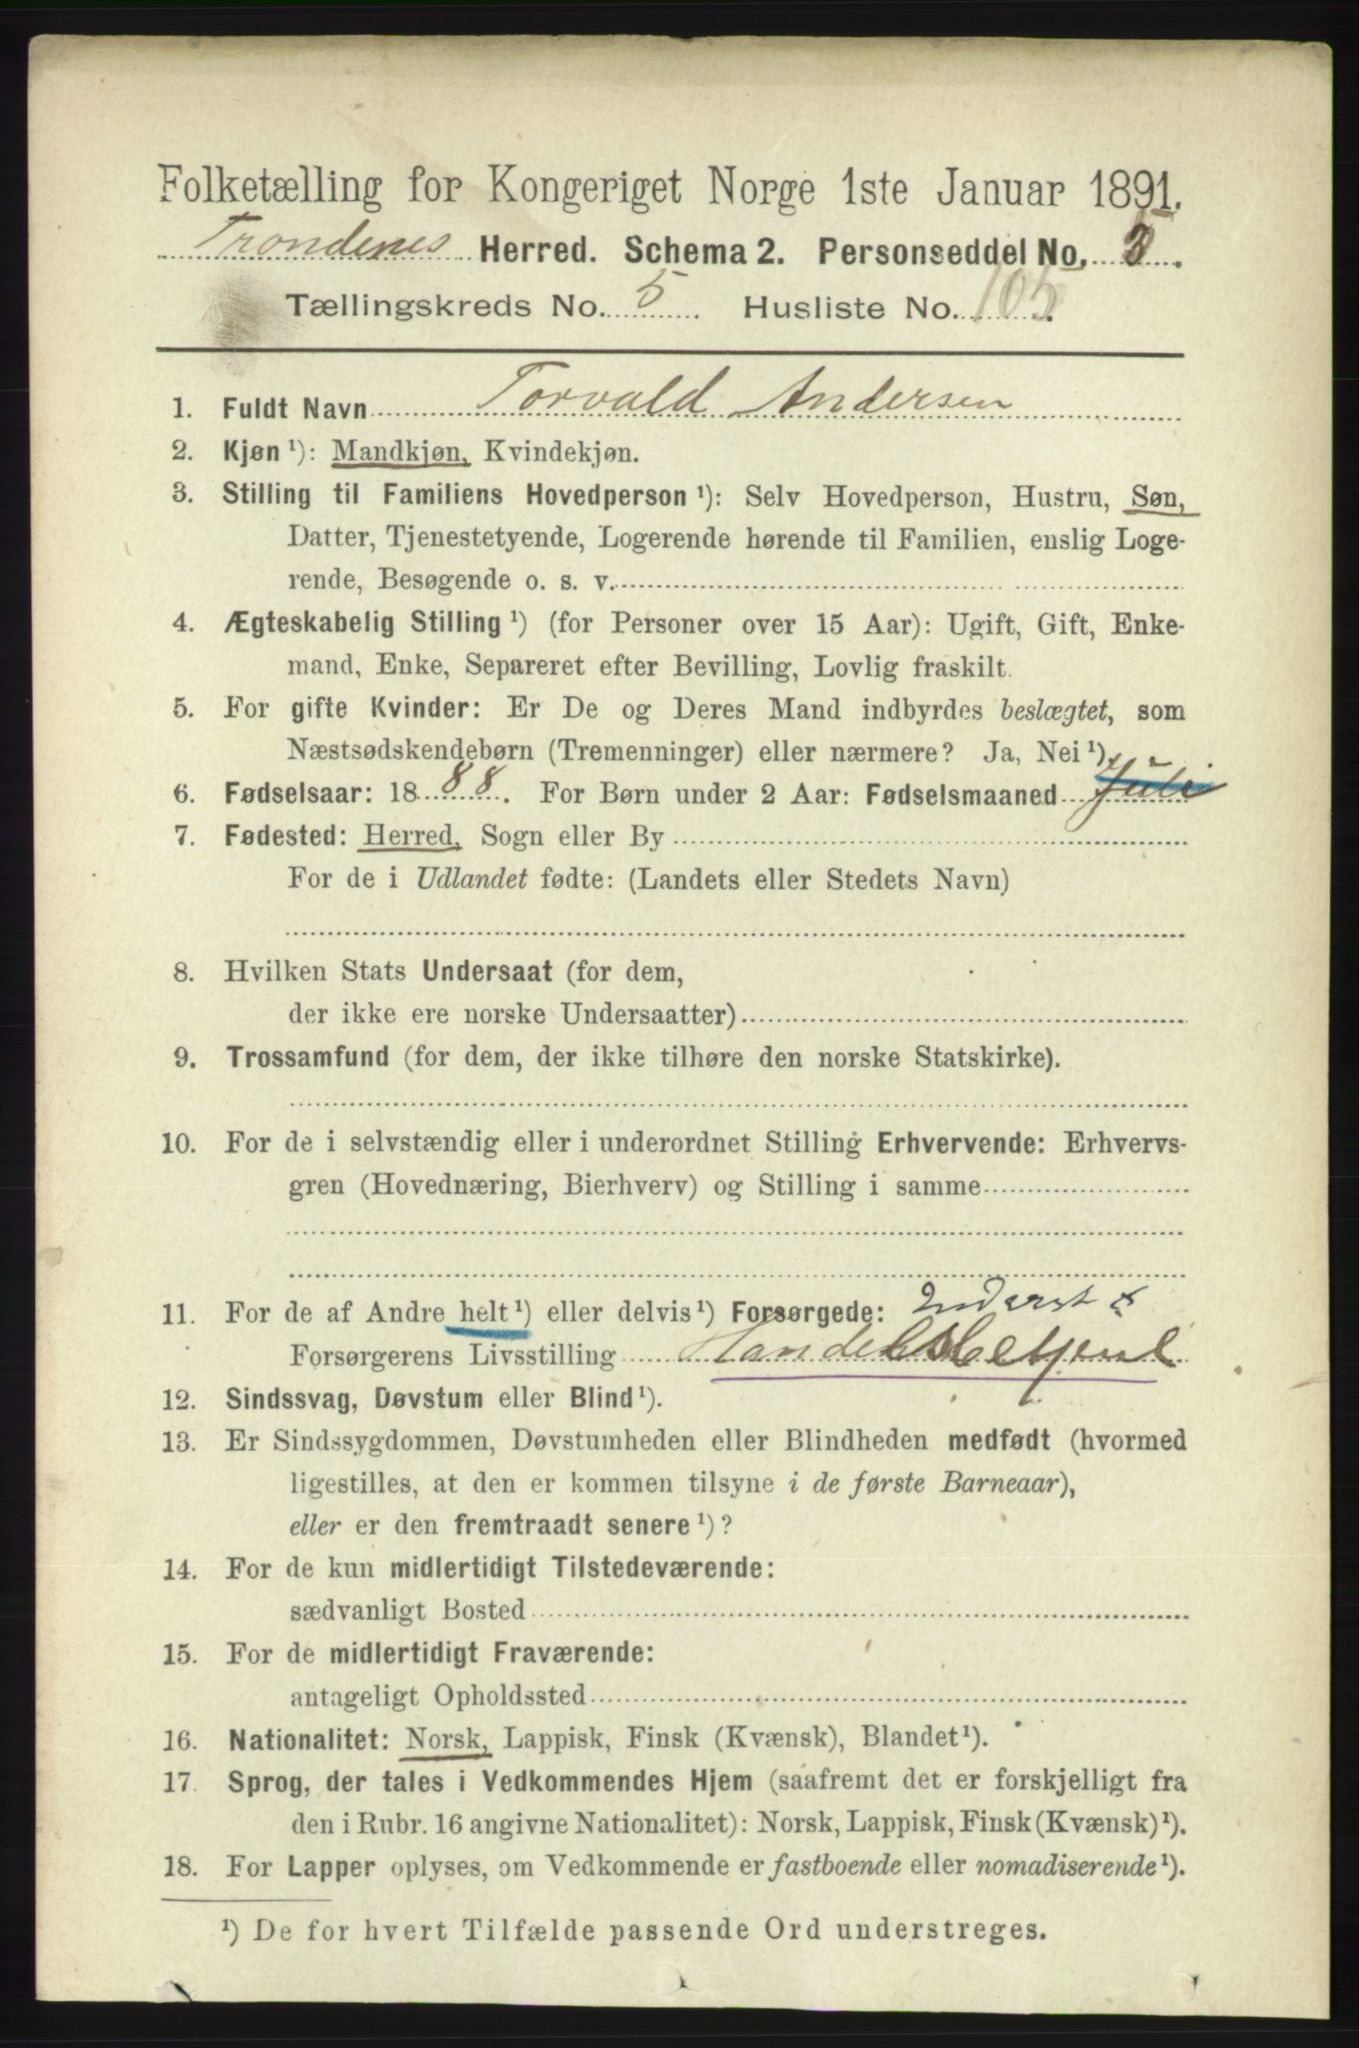 Folketælling for Kongeriget Norge 1ste Januar 1891.
Trondenes Herred. Schema 2. Personseddel No. 5.
Tællingskreds No. 5. Husliste No. 105.
1. Fuldt Navn Torvald Andersen
2. Kjøn ¹): Mandkjøn, Kvindekjøn.
3. Stilling til Familiens Hovedperson ¹): Selv Hovedperson, Hustru, Søn,
Datter, Tjenestetyende, Logerende hørende til Familien, enslig Loge-
rende, Besøgende o. s. v.
4. Ægteskabelig Stilling ¹) (for Personer over 15 Aar): Ugift, Gift, Enke-
mand, Enke, Separeret efter Bevilling, Lovlig fraskilt.
5. For gifte Kvinder: Er De og Deres Mand indbyrdes beslægtet, som
Næstsødskendebørn (Tremenninger) eller nærmere? Ja, Nei ¹).
6. Fødselsaar: 1888. For Børn under 2 Aar: Fødselsmaaned Juli
7. Fødested: Herred, Sogn eller By
For de i Udlandet fødte: (Landets eller Stedets Navn)
8. Hvilken Stats Undersaat (for dem,
der ikke ere norske Undersaatter)
9. Trossamfund (for dem, der ikke tilhøre den norske Statskirke).
10. For de i selvstændig eller i underordnet Stilling Erhvervende: Erhvervs-
gren (Hovednæring, Bierhverv) og Stilling i samme
11. For de af Andre helt ¹) eller delvis ¹) Forsørgede: Inderst &
Forsørgerens Livsstilling Handelsbetjent
12. Sindssvag, Døvstum eller Blind ¹).
13. Er Sindssygdommen, Døvstumheden eller Blindheden medfødt (hvormed
ligestilles, at den er kommen tilsyne i de første Barneaar),
eller er den fremtraadt senere ¹)?
14. For de kun midlertidigt Tilstedeværende:
sædvanligt Bosted
15. For de midlertidigt Fraværende:
antageligt Opholdssted
16. Nationalitet: Norsk, Lappisk, Finsk (Kvænsk), Blandet ¹).
17. Sprog, der tales i Vedkommendes Hjem (saafremt det er forskjelligt fra
den i Rubr. 16 angivne Nationalitet): Norsk, Lappisk, Finsk (Kvænsk) ¹).
18. For Lapper oplyses, om Vedkommende er fastboende eller nomadiserende ¹).
¹) De for hvert Tilfælde passende Ord understreges.